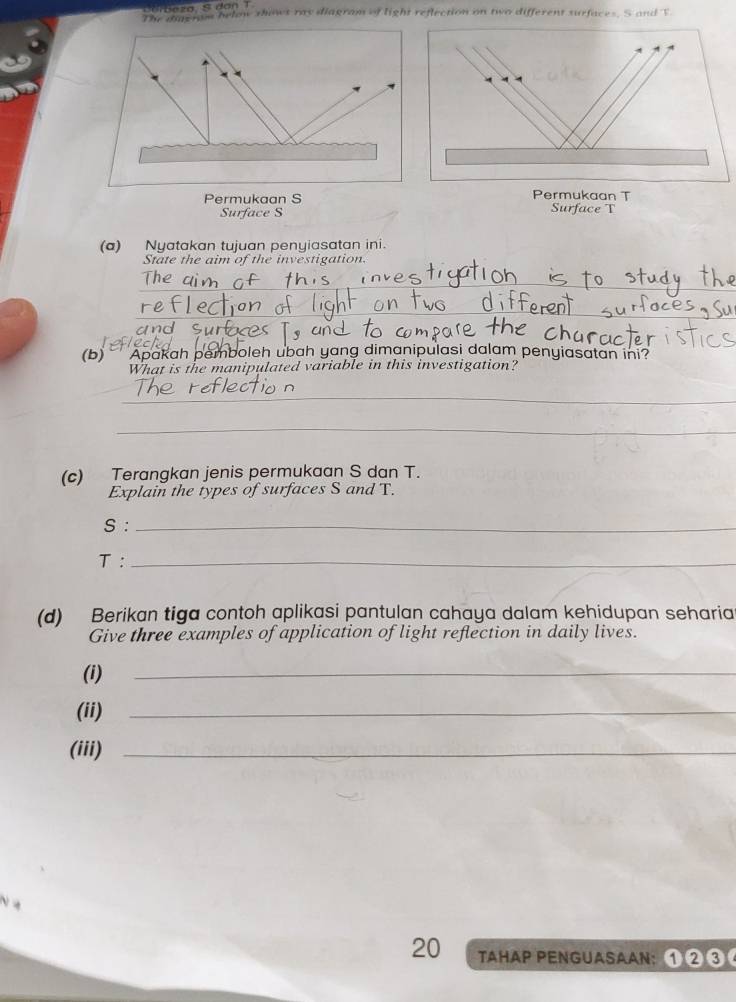 Berbeza, S dan T.
The diagram below shows ray diagram of light reflection on two different surfaces, S and T.
Permukaan S
Surface S
Permukaan T
Surface T
(a) Nyatakan tujuan penyiasatan ini.
State the aim of the investigation.
The aim of this investigation is to study the
reflection of light on two different surfaces, Su
and surfaces T, and to compare the characteristics
reflected light
(b) Apakah pemboleh ubah yang dimanipulasi dalam penyiasatan ini?
What is the manipulated variable in this investigation?
The reflection
(c) Terangkan jenis permukaan S dan T.
Explain the types of surfaces S and T.
S :
T :
(d) Berikan tiga contoh aplikasi pantulan cahaya dalam kehidupan seharia
Give three examples of application of light reflection in daily lives.
(i)
(ii)
(iii)
20 TAHAP PENGUASAAN: 1 2 3